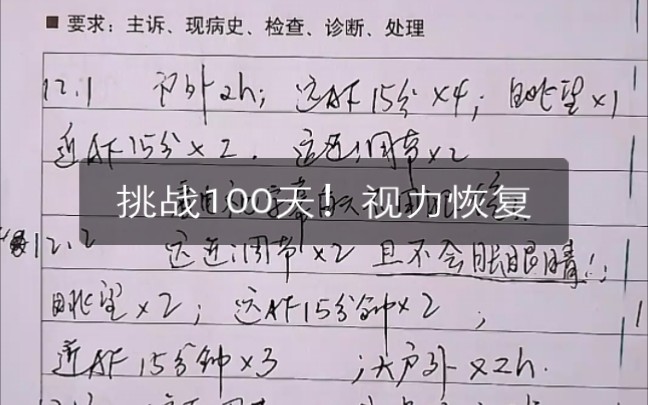 ■ 要求：主诉、现病史、检查、诊断、处理
12.1 户外2h; 远AF15分×4; 眺望×1
近AF15分×2. 远近调节×2
挑战100天！视力恢复
12.2 远近调节×2 且不会眨眼睛!!
眺望×2; 远AF15分钟×2 ;
近AF15分钟×3 ;大户外×2h.